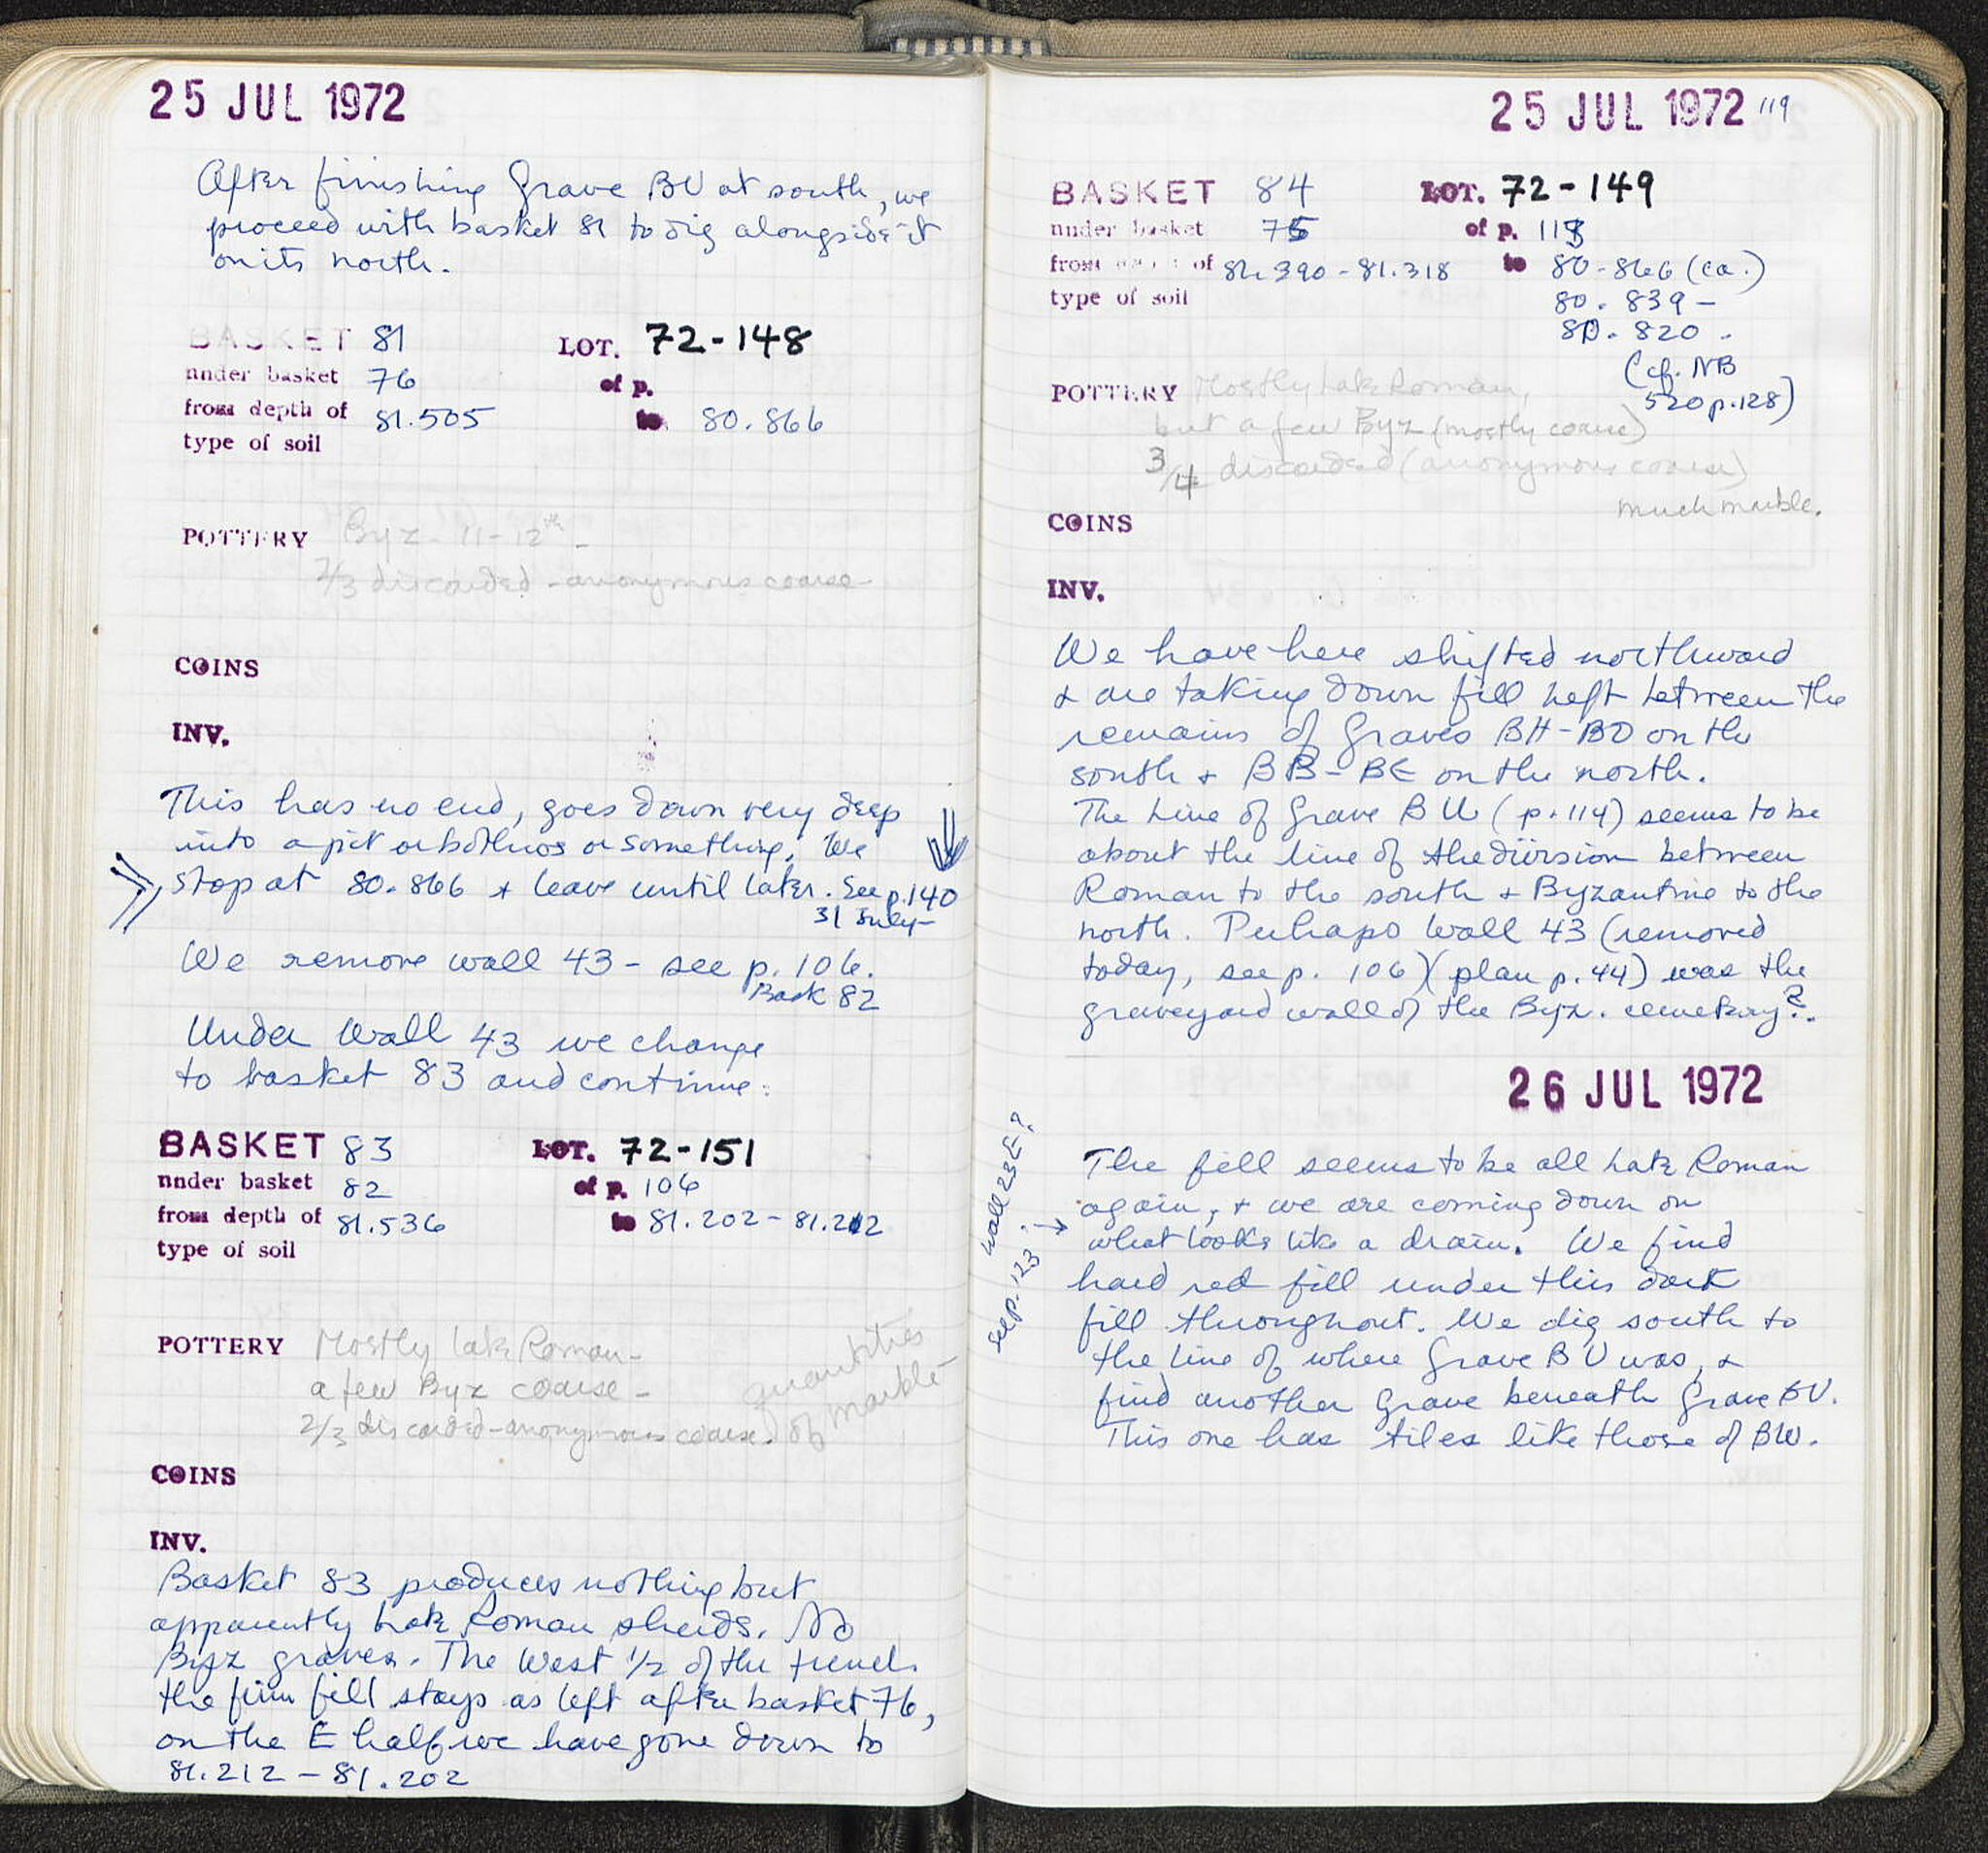 25 JUL 1972
After finishing Grave BU at south, we
proceed with basket 81 to dig alongside it
on its north.
BASKET 81 LOT. 72-148
under basket 76 of p.
from depth of 81.505 to 80.866
type of soil
POTTERY Byz - 11-12th -
2/3 discarded - anonymous coarse -
COINS
INV.
This has no end, goes down very deep
into a pit or bothros or something. We
stop at 80.866 + leave until later. See p.140
31 July -
We remove wall 43 - see p. 106.
Bask 82
Under Wall 43 we change
to basket 83 and continue:
BASKET 83 LOT. 72-151
under basket 82 of p. 106
from depth of 81.536 to 81.202 - 81.212
type of soil
POTTERY Mostly late Roman -
a few Byz coarse -
2/3 discarded - anonymous coarse.
quantities
of marble
COINS
INV.
Basket 83 produces nothing but
apparently Late Roman sherds. No
Byz graves. The West 1/2 of the trench
the firm fill stays as left after basket 76,
on the E half we have gone down to
81.212 - 81.202
25 JUL 1972 119
BASKET 84 LOT. 72-149
under basket 75 of p. 113
from depth of 81.390 - 81.318 to 80.866 (ca.)
type of soil 80.839 -
80.820 .
(cf. NB
520 p.128)
POTTERY Mostly Late Roman,
but a few Byz (mostly coarse)
3/4 discarded (anonymous coarse)
much marble.
COINS
INV.
We have here shifted northward
+ are taking down fill left between the
remains of Graves BH-BO on the
south + BB-BE on the north.
The Line of Grave BU (p. 114) seems to be
about the line of the division between
Roman to the south + Byzantine to the
north. Perhaps Wall 43 (removed
today, see p. 106) (plan p. 44) was the
graveyard wall of the Byz. cemetery?.
26 JUL 1972
The fill seems to be all Late Roman
again, + we are coming down on
what looks like a drain. We find
hard red fill under this dark
fill throughout. We dig south to
the line of where Grave BU was, +
find another Grave beneath Grave BU.
This one has tiles like those of BW.
wall 23E?
see p. 123